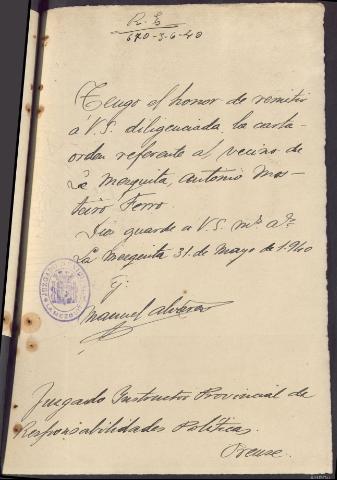 R. E.
670-3-6-40
Tengo el honor de remitir
á V.S. diligenciada la carta-
orden referente al vecino de
La Mezquita, Antonio Mos-
teiro Ferro.
Dios guarde a V.S. ms. as.
La Mezquita 31 de Mayo de 1.940
Manuel Alvarez
Juzgado Instructor Provincial de
Responsabilidades Políticas.
Orense.